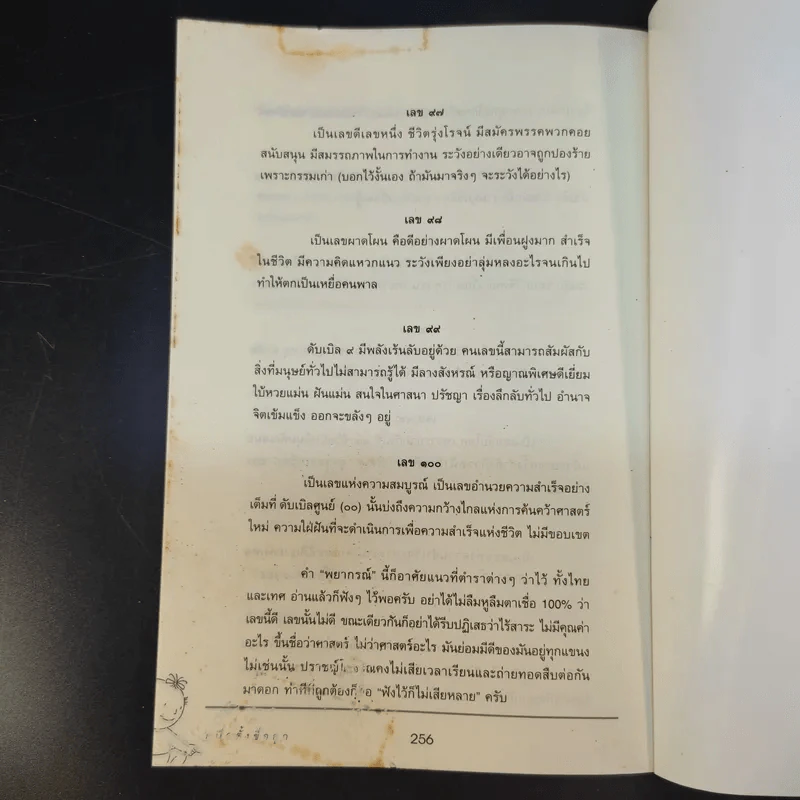 เลข ๙๗
เป็นเลขดีเลขหนึ่ง ชีวิตรุ่งโรจน์ มีสมัครพรรคพวกคอย
สนับสนุน มีสมรรถภาพในการทำงาน ระวังอย่างเดียวอาจถูกปองร้าย
เพราะกรรมเก่า (บอกไว้งั้นเอง ถ้ามันมาจริงๆ จะระวังได้อย่างไร)
เลข ๙๘
เป็นเลขผาดโผน คือดีอย่างผาดโผน มีเพื่อนฝูงมาก สำเร็จ
ในชีวิต มีความคิดแหวกแนว ระวังเพียงอย่าลุ่มหลงอะไรจนเกินไป
ทำให้ตกเป็นเหยื่อคนพาล
เลข ๙๙
ดับเบิล ๙ มีพลังเร้นลับอยู่ด้วย คนเลขนี้สามารถสัมผัสกับ
สิ่งที่มนุษย์ทั่วไปไม่สามารถรู้ได้ มีลางสังหรณ์ หรือญาณพิเศษดีเยี่ยม
ใบ้หวยแม่น ฝันแม่น สนใจในศาสนา ปรัชญา เรื่องลึกลับทั่วไป อำนาจ
จิตเข้มแข็ง ออกจะขลังๆ อยู่
เลข ๑๐๐
เป็นเลขแห่งความสมบูรณ์ เป็นเลขอำนวยความสำเร็จอย่าง
เต็มที่ ดับเบิลศูนย์ (๐๐) นั้นบ่งถึงความกว้างไกลแห่งการค้นคว้าศาสตร์
ใหม่ ความใฝ่ฝันที่จะดำเนินการเพื่อความสำเร็จแห่งชีวิต ไม่มีขอบเขต
คำ “พยากรณ์” นี้ก็อาศัยแนวที่ตำราต่างๆ ว่าไว้ ทั้งไทย
และเทศ อ่านแล้วก็ฟังๆ ไว้พอครับ อย่าได้ไม่ลืมหูลืมตาเชื่อ 100% ว่า
เลขนี้ดี เลขนั้นไม่ดี ขณะเดียวกันก็อย่าได้รีบปฏิเสธว่าไร้สาระ ไม่มีคุณค่า
อะไร ขึ้นชื่อว่าศาสตร์ ไม่ว่าศาสตร์อะไร มันย่อมมีดีของมันอยู่ทุกแขนง
ไม่เช่นนั้น ปราชญ์ คงไม่เสียเวลาเรียนและถ่ายทอดสืบต่อกัน
มาดอก ท่าทีที่ถูกต้องก็ “ฟังไว้ก็ไม่เสียหลาย” ครับ
256